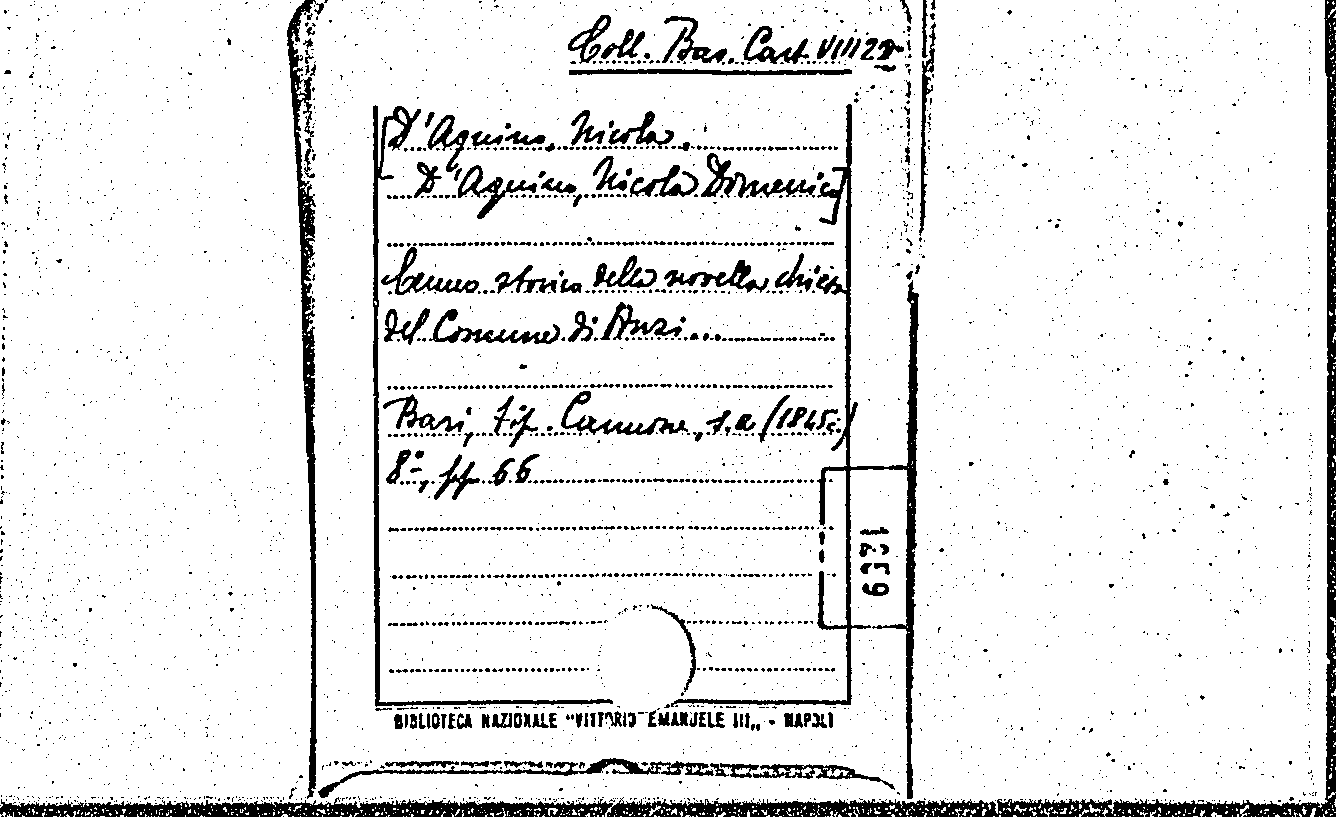 Coll. Bas. Cart VIII 22
[D'Aquino, Nicola.
- D'Aquino, Nicola Domenico]
Cenno storico della novella chiesa
del Comune di Anzi...
Bari, tip. Cannone, s.a (1845c.)
8º, pp 66
1859
BIBLIOTECA NAZIONALE "VITTORIO EMANUELE III„ - NAPOLI